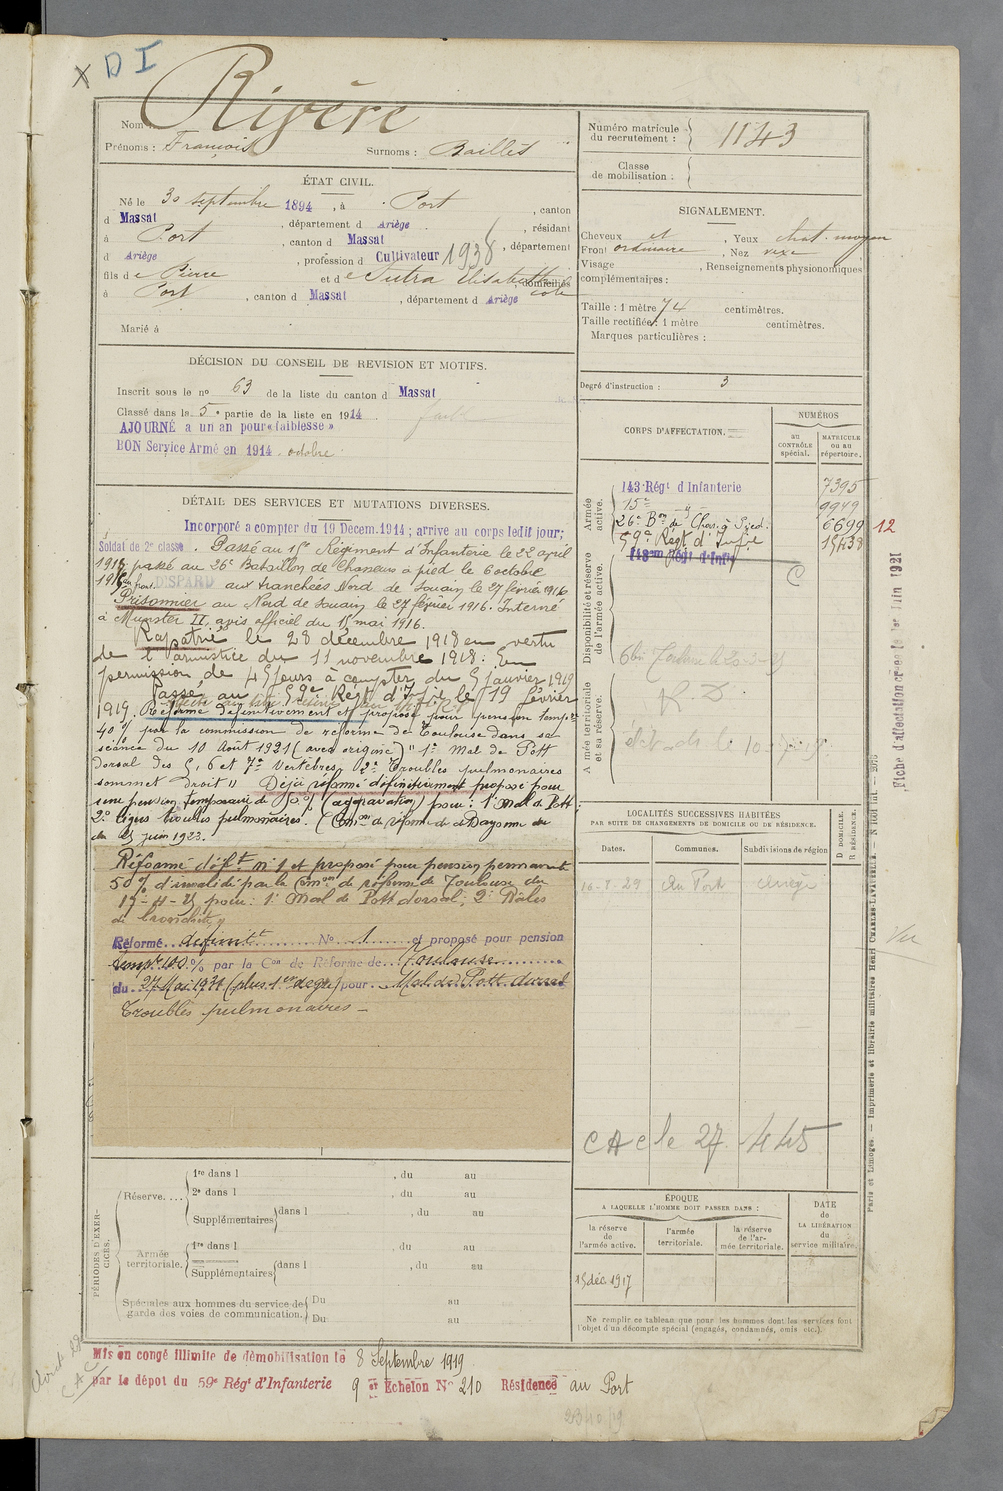 X D I
Rivère
Nom :
Prénoms : François Surnoms : Bailles
ÉTAT CIVIL.
Né le 30 septembre 1894, à Port, canton
d Massat, département d Ariège, résidant
à Port, canton d Massat, département
d Ariège, profession d Cultivateur 1938
fils de Pierre et de Sutra Elisabeth domiciliés
à Port, canton d Massat, département d Ariège
Marié à
DÉCISION DU CONSEIL DE REVISION ET MOTIFS.
Inscrit sous le no 63 de la liste du canton d Massat
Classé dans la 5e partie de la liste en 1914
AJOURNÉ a un an pour « faiblesse »
BON Service Armé en 1914 octobre
DÉTAIL DES SERVICES ET MUTATIONS DIVERSES.
Incorporé a compter du 19 Decem. 1914 ; arrivé au corps ledit jour ;
Soldat de 2e classe. Passé au 15e Régiment d'Infanterie le 22 avril
1915, passé au 26e Bataillon de Chasseurs à pied le 6 octobre
1915 DISPARU aux tranchées Nord de Souain le 27 février 1916.
Prisonnier au Nord de Souain le 27 février 1916. Interné
à Munster II, avis officiel du 15 mai 1916.
Rapatrié le 28 décembre 1918 en vertu
de l'armistice du 11 novembre 1918 : En
permission de 45 jours à compter du 5 janvier 1919
Passé au 59e Régt d'Infie le 19 février
1919. Réformé définitivement et proposé pour pension tempre
40 % par la commission de réforme de Toulouse dans sa
séance du 10 Août 1921 (avec origine) " 1° Mal de Pott
dorsal des 5, 6 et 7e vertèbres, 2° Troubles pulmonaires
sommet droit " Déjà réformé définitivement proposé pour
une pension temporaire de 50 % (aggravation) pour : 1° Mal de Pott
2° légers troubles pulmonaires. (Comon de réforme de Bayonne du
du 25 juin 1923.
Réformé déft n° 1 et proposé pour pension permanente
50 % d'invalidité par la Comon de réforme de Toulouse du
17-4-25 pour : 1° Mal de Pott dorsal ; 2° Râles
de bronchite
Réformé définitt No 1 et proposé pour pension
tempre 100 % par la Con de Réforme de Toulouse
du 27 Mai 1931 (plus 1er degré) pour Mal de Pott dorsal
Troubles pulmonaires
PÉRIODES D'EXERCICES.
Réserve.... 1re dans l , du au
2e dans l , du au
Supplémentaires dans l , du au
Armée territoriale. 1re dans l , du au
Supplémentaires dans l , du au
Spéciales aux hommes du service de garde des voies de communication. Du au
Du au
Mis en congé illimité de démobilisation le 8 Septembre 1919
par le dépot du 59e Régt d'Infanterie 9 er Echelon No 210 Résidence au Port
Numéro matricule du recrutement : 1143
Classe de mobilisation :
SIGNALEMENT.
Cheveux et , Yeux chat. moyen
Front ordinaire , Nez vexe
Visage , Renseignements physionomiques
complémentaires :
Taille : 1 mètre 74 centimètres.
Taille rectifiée : 1 mètre centimètres.
Marques particulières :
Degré d'instruction : 3
CORPS D'AFFECTATION.
NUMÉROS
au CONTRÔLE spécial.
MATRICULE ou au répertoire.
Armée active.
143 Régt d Infanterie 7395
15e — d° — 9949
26e Bon de Chas. à Pied. 6699 12
59e Régt d'Infie 15438
Disponibilité et réserve de l'armée active.
C
Armée territoriale et sa réserve.
R. D.
Fiche d'affectation créée le 1er Juin 1921
LOCALITÉS SUCCESSIVES HABITÉES
PAR SUITE DE CHANGEMENTS DE DOMICILE OU DE RÉSIDENCE.
Dates. Communes. Subdivisions de région D DOMICILE. R RÉSIDENCE.
16-8-29 Au Port Ariège
Vu
C A C le 27 4 45
ÉPOQUE
A LAQUELLE L'HOMME DOIT PASSER DANS :
la réserve de l'armée active.
l'armée territoriale.
la réserve de l'armée territoriale.
DATE de LA LIBÉRATION du service militaire.
15 déc. 1917
Ne remplir ce tableau que pour les hommes dont les services font
l'objet d'un décompte spécial (engagés, condamnés, omis etc.).
Paris et Limoges. — Imprimerie et librairie militaires Henri CHARLES-LAVAUZELLE.